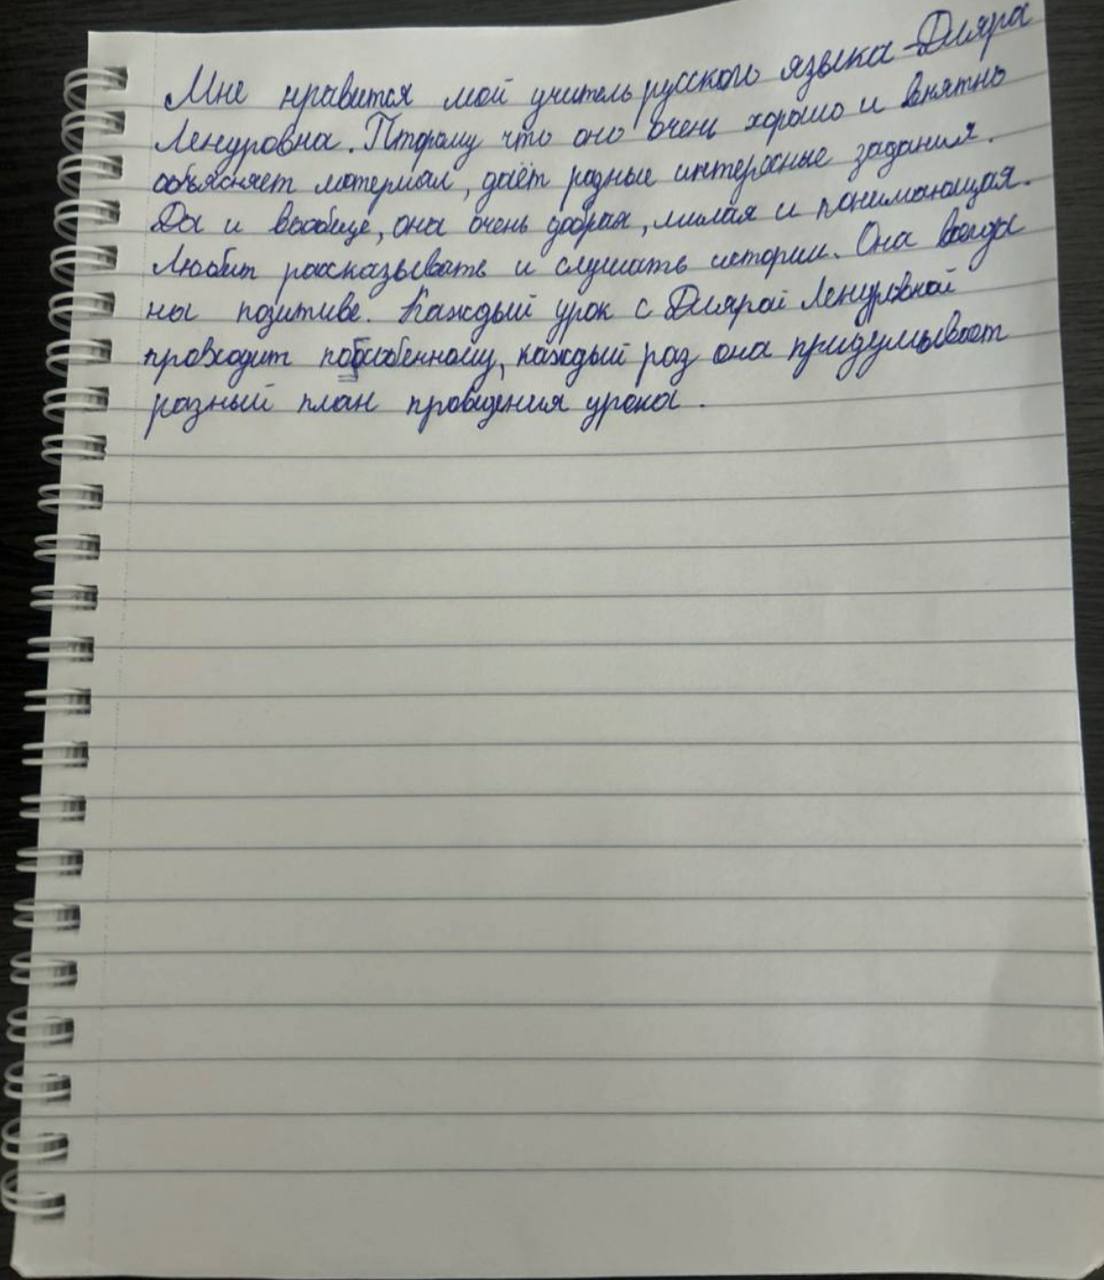 Мне нравится мой учитель русского языка - Диляра
Ленуровна. Птторому что оно очень хорошо и внятно
объясняет материал, даёт разные интересные задания.
Да и вообще, она очень добрая, милая и понимающая.
Любит рассказывать и слушать истории. Она всегда
на позитиве. Каждый урок с Дилярой Ленуровной
проходит пообсобенному, каждый раз она придумывает
разный план проведения урока.